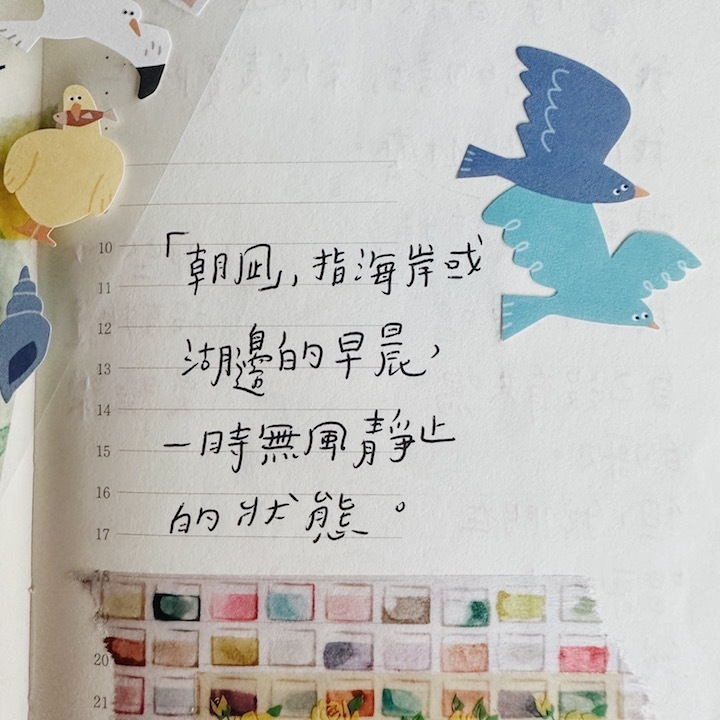 10
「朝凪」,指海岸或
11
12
湖邊的早晨,
13
14
一時無風靜止
15
16
的狀態。
17
20
21